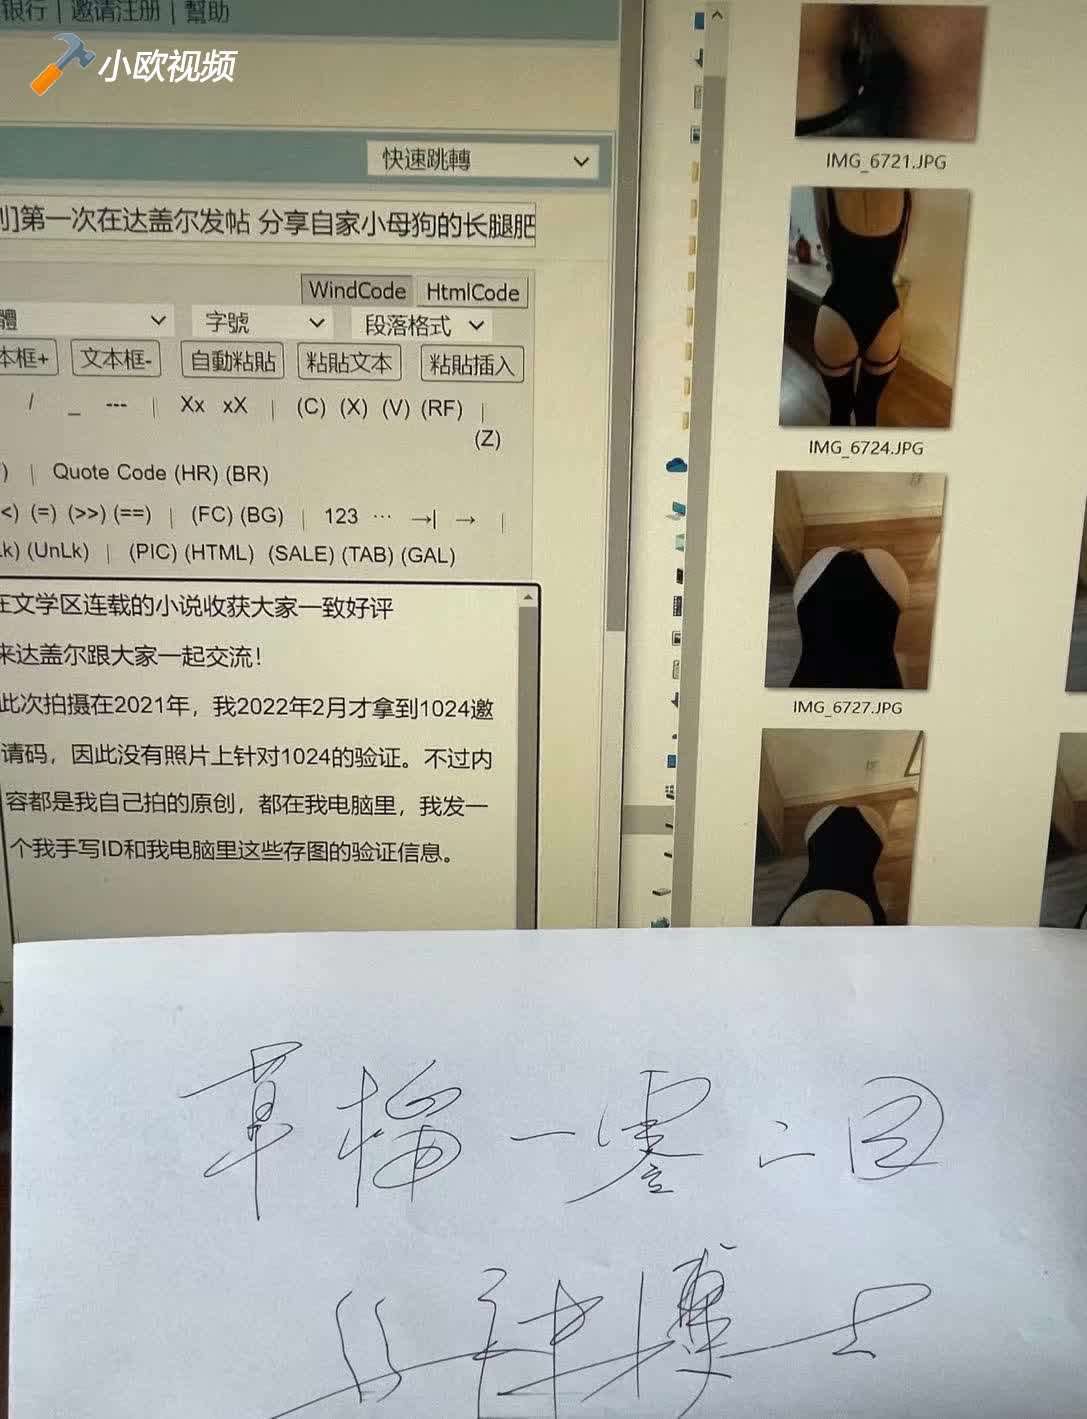 银行 | 邀请注册 | 幫助
小欧视频
快速跳轉
]第一次在达盖尔发帖 分享自家小母狗的长腿肥
WindCode HtmlCode
體 字號 段落格式
本框+ 文本框- 自動粘貼 粘貼文本 粘貼插入
/ _ --- | Xx xX | (C) (X) (V) (RF) |
(Z)
) | Quote Code (HR) (BR)
<) (=) (>>) (==) | (FC) (BG) | 123 ··· →| → |
k) (UnLk) | (PIC) (HTML) (SALE) (TAB) (GAL)
在文学区连载的小说收获大家一致好评
来达盖尔跟大家一起交流！
此次拍摄在2021年，我2022年2月才拿到1024邀
请码，因此没有照片上针对1024的验证。不过内
容都是我自己拍的原创，都在我电脑里，我发一
个我手写ID和我电脑里这些存图的验证信息。
IMG_6721.JPG
IMG_6724.JPG
IMG_6727.JPG
草榴一零二四
博士